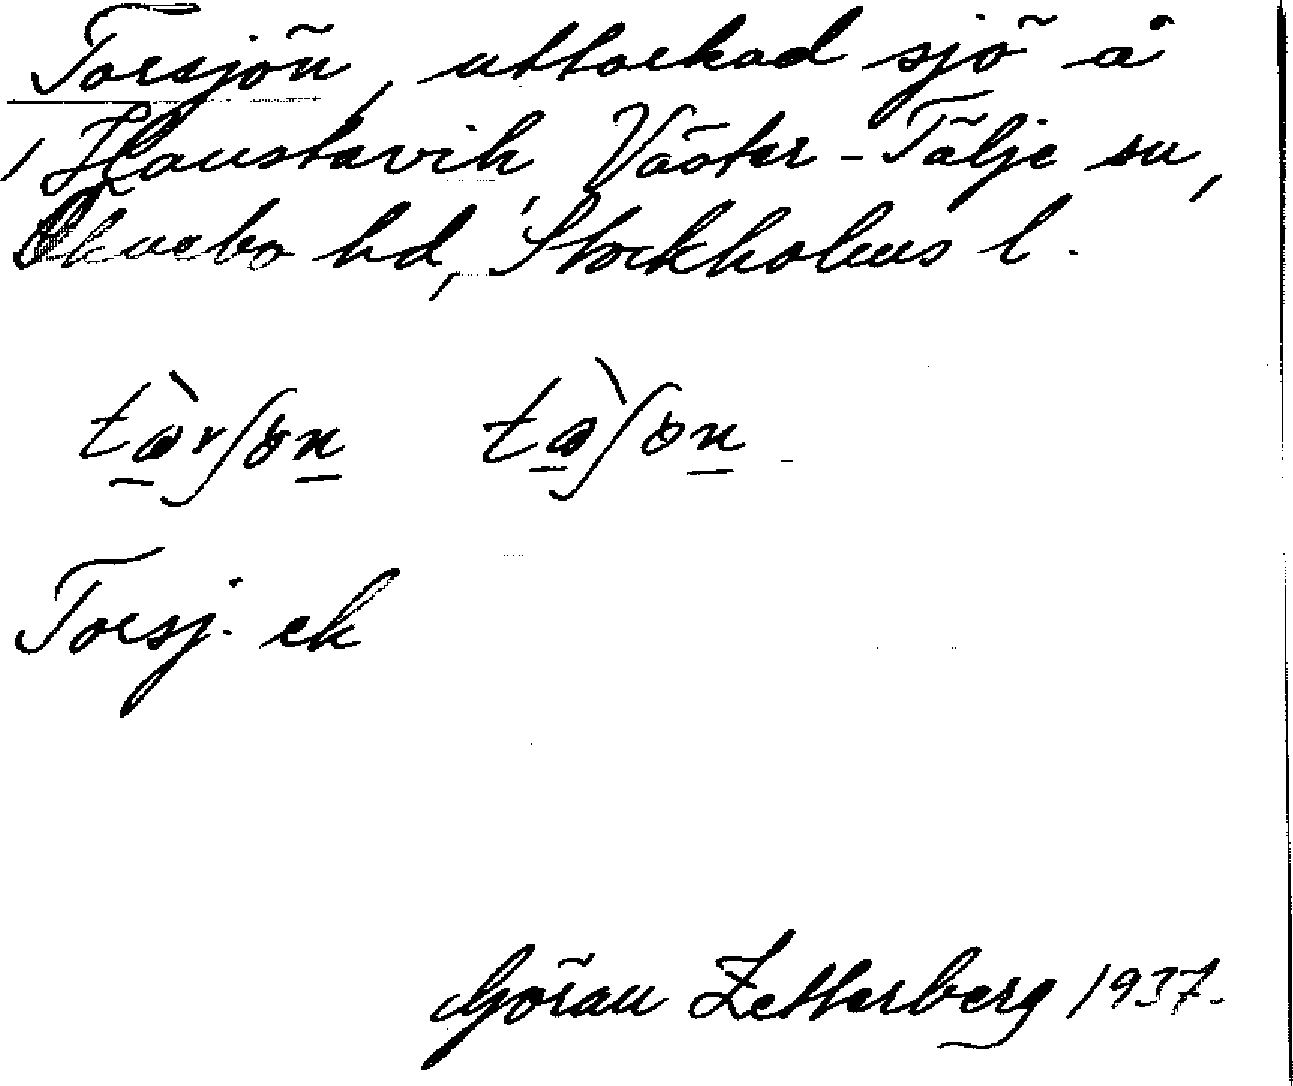 Torsjön, uttorkad sjö å
Haustavik, Väster-Tälje sn,
Öknebo hd, Stockholms l.
tàrʃɵn tàʃɵn
Torsj. ek
Göran Zetterberg 1937.